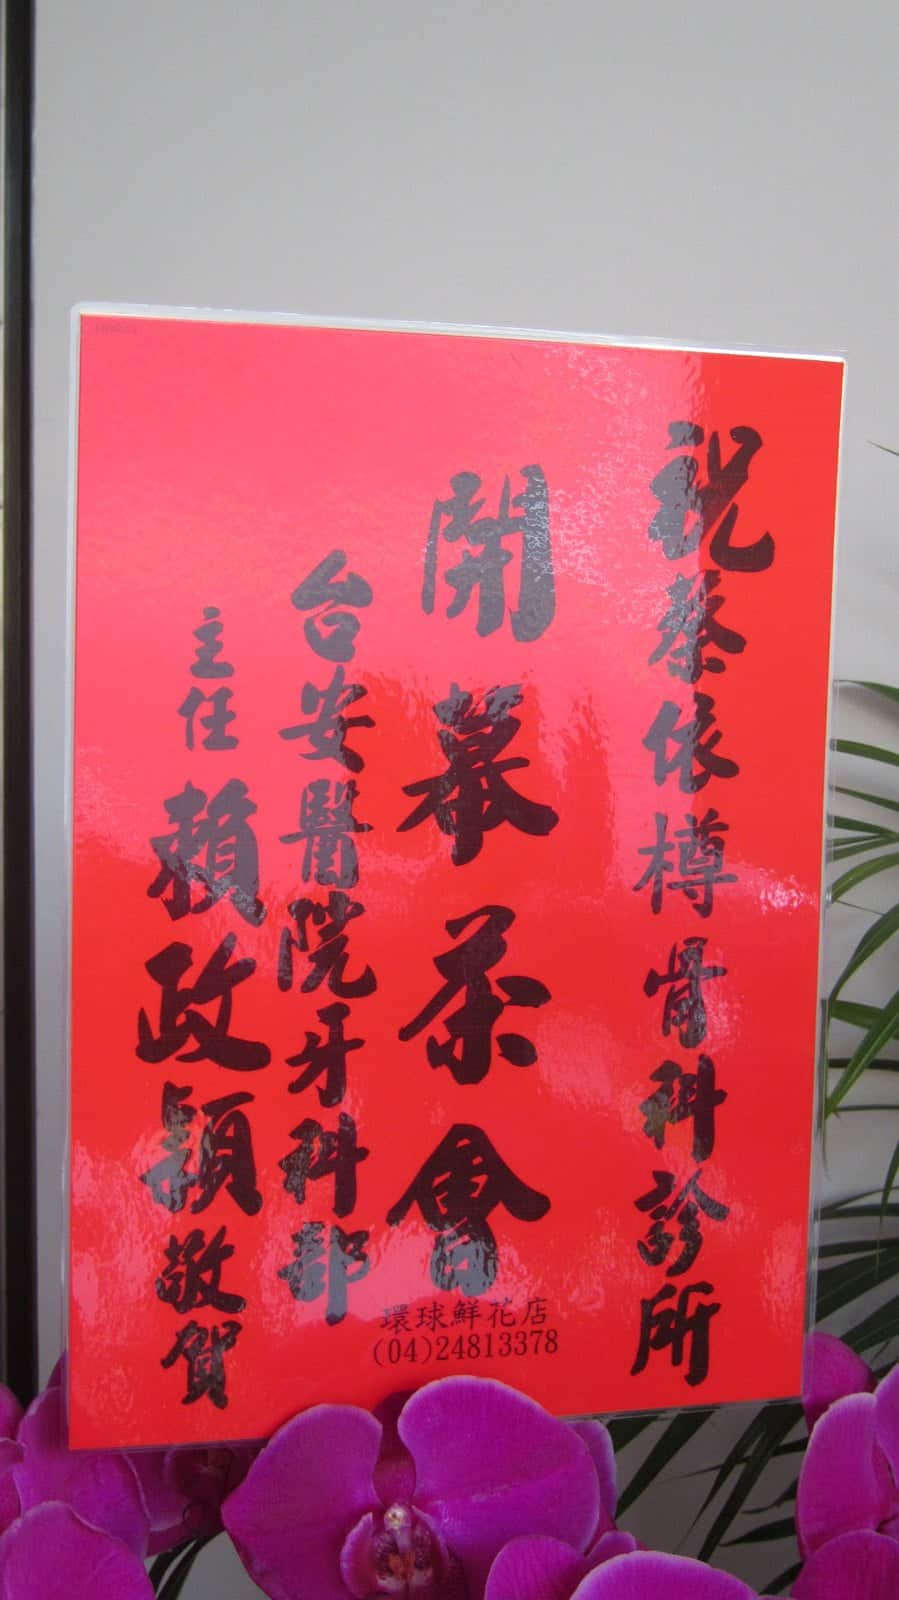 祝蔡依樽骨科診所
開幕茶會
台安醫院牙科部
主任賴政潁敬賀
環球鮮花店
(04)24813378